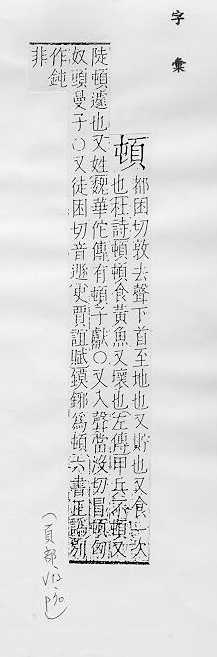 字彙
頓
都困切敦去聲下首至地也又貯也又食一次
也杜詩頓頓食黃魚又壞也左傳甲兵不頓又
陡頓遽也又姓魏華佗傳有頓子獻○又入聲當沒切冒頓匈
奴頭曼子○又徒困切音遯史賈誼賦鏌鋣爲頓六書正譌別
作鈍
非
(頁部 V12 P70)